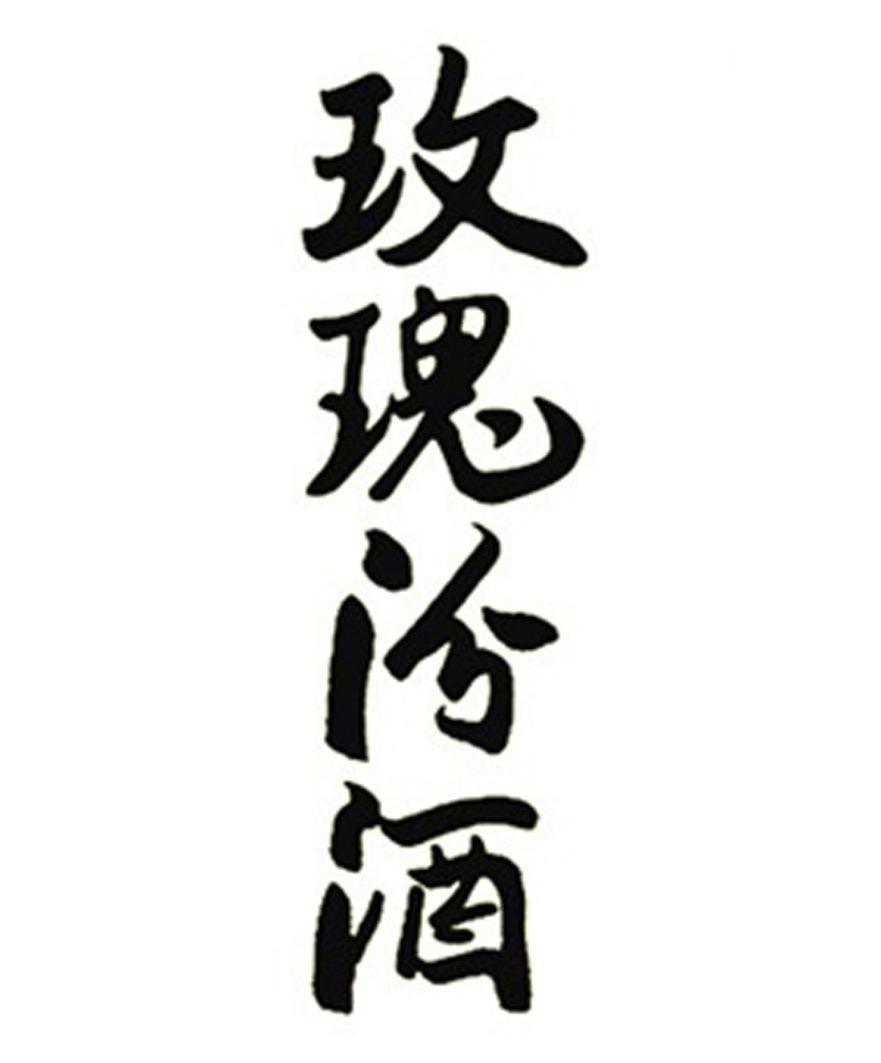 玫瑰汾酒